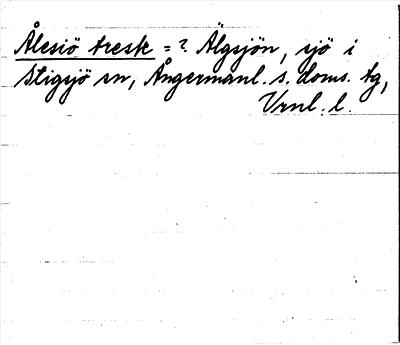 Ålesiö tresk = ? Älgsjön, sjö i
Stigsjö sn, Ångermanl. s. doms. tg,
Vrnl. l.